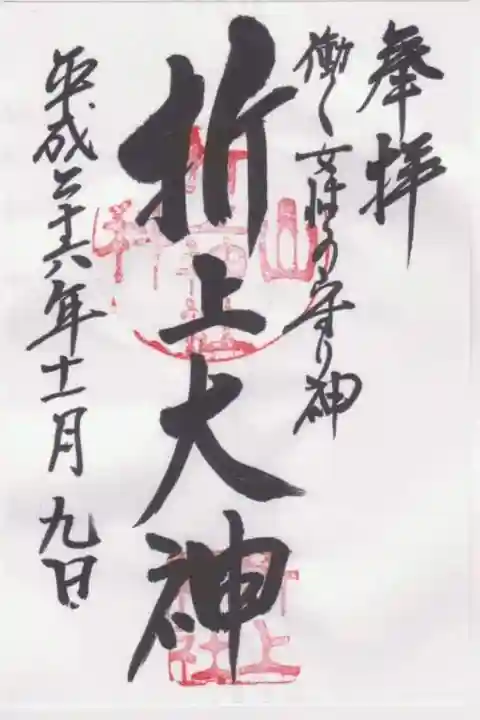 奉拝
働く女性の守り神
折上大神
平成二十六年十一月九日